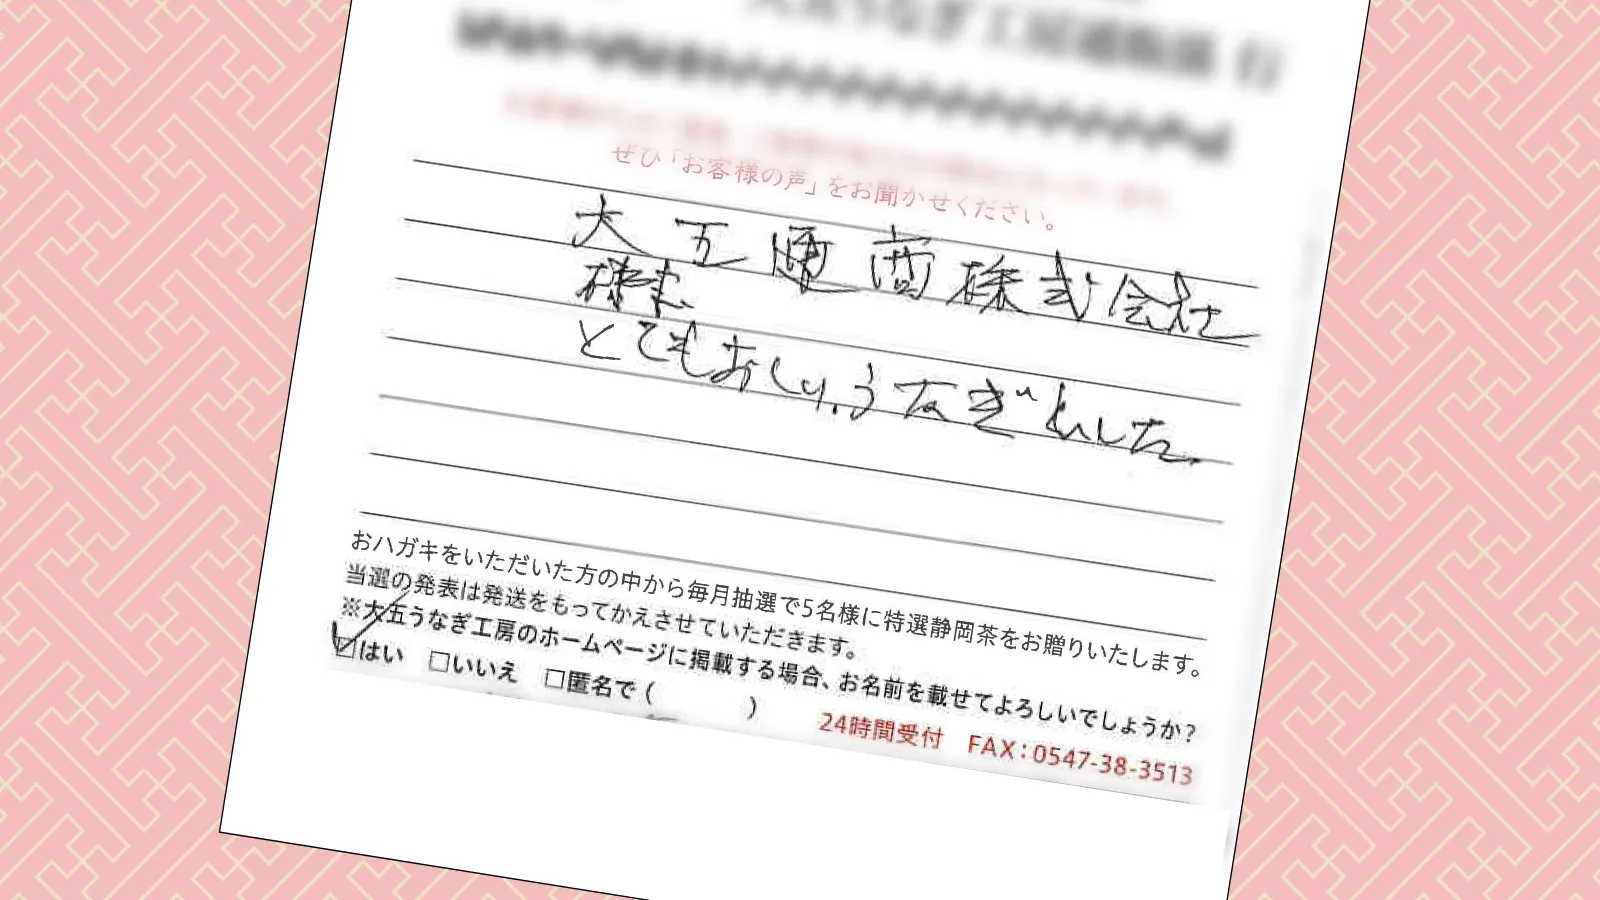 大五うなぎ工房通販係 行
ぜひ「お客様の声」をお聞かせください。
大五通商株式会社
様
とてもおいしいうなぎでした。
おハガキをいただいた方の中から毎月抽選で5名様に特選静岡茶をお贈りいたします。
当選の発表は発送をもってかえさせていただきます。
※大五うなぎ工房のホームページに掲載する場合、お名前を載せてよろしいでしょうか?
☑はい □いいえ □匿名で( )
24時間受付 FAX:0547-38-3513